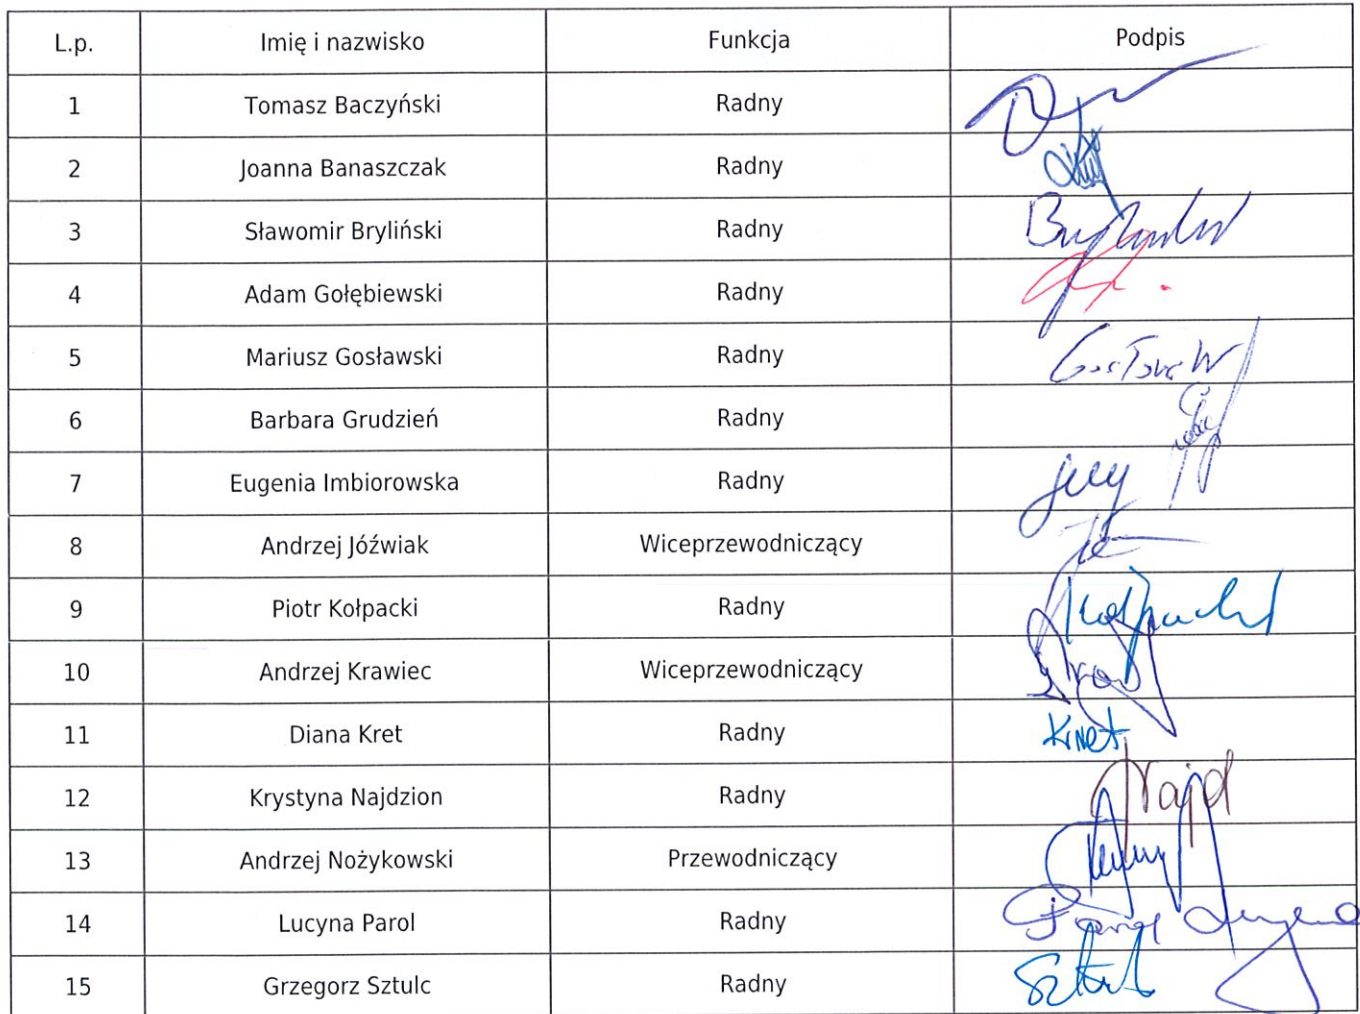 L.p. Imię i nazwisko Funkcja Podpis
1 Tomasz Baczyński Radny
2 Joanna Banaszczak Radny
3 Sławomir Bryliński Radny
4 Adam Gołębiewski Radny
5 Mariusz Gosławski Radny
6 Barbara Grudzień Radny
7 Eugenia Imbiorowska Radny
8 Andrzej Jóźwiak Wiceprzewodniczący
9 Piotr Kołpacki Radny
10 Andrzej Krawiec Wiceprzewodniczący
11 Diana Kret Radny Kret
12 Krystyna Najdzion Radny Najd
13 Andrzej Nożykowski Przewodniczący
14 Lucyna Parol Radny Parol Lucyna
15 Grzegorz Sztulc Radny